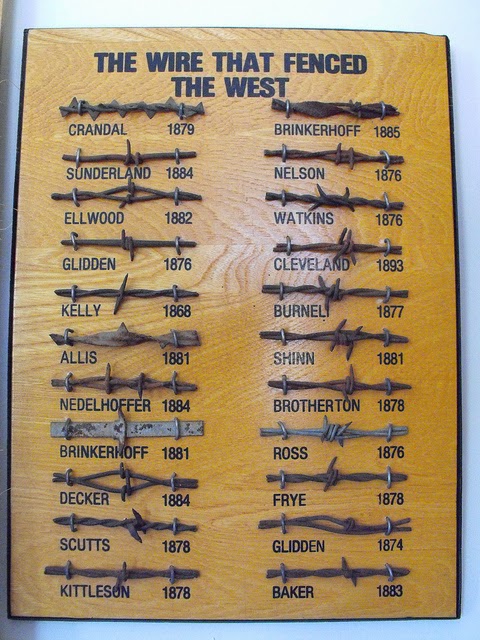 THE WIRE THAT FENCED
THE WEST
CRANDAL 1879
SUNDERLAND 1884
ELLWOOD 1882
GLIDDEN 1876
KELLY 1868
ALLIS 1881
NEDELHOFFER 1884
BRINKERHOFF 1881
DECKER 1884
SCUTTS 1878
KITTLESON 1878
BRINKERHOFF 1885
NELSON 1876
WATKINS 1876
CLEVELAND 1893
BURNELL 1877
SHINN 1881
BROTHERTON 1878
ROSS 1876
FRYE 1878
GLIDDEN 1874
BAKER 1883